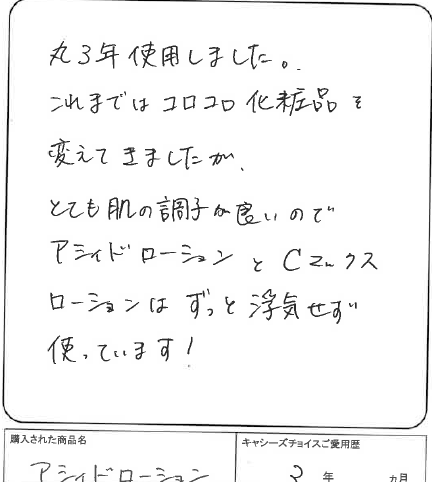 丸3年使用しました。
これまではコロコロ化粧品を
変えてきましたが、
とても肌の調子が良いので
アシィドローションとCエックス
ローションはずっと浮気せず
使っています!
購入された商品名
キャシーズチョイスご愛用歴
アシィドローション
3年
ヵ月